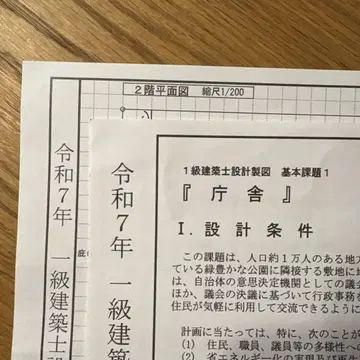 2階平面図 縮尺1/200
令和7年 一級建築士設
令和7年 一級建築士
1級建築士設計製図 基本課題1
『庁舎』
I.設計条件
この課題は、人口約1万人のある地方
ている緑豊かな公園に隣接する敷地に
は、自治体の意思決定機関としての議会
ほか、議会の決議に基づいて行政事務を
住民が気軽に利用して交流できるように
計画に当たっては、特に、次のことが
(1) 住民、職員、議員等の多様性へ
(2) 省エネルギー化の実現及び